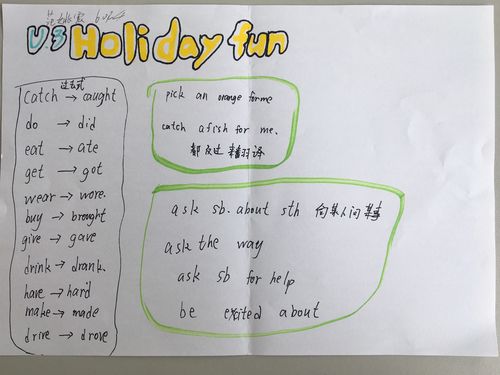 U.3 Holiday fun
过去式
catch → caught
do → did
eat → ate
get → got
wear → wore.
buy → brought
give → gave
drink → drank.
have → hard
make → made
drive → drove
pick an orange for me
catch a fish for me.
都反过来翻译
ask sb. about sth 向某人问某事
ask the way
ask sb for help
be excited about